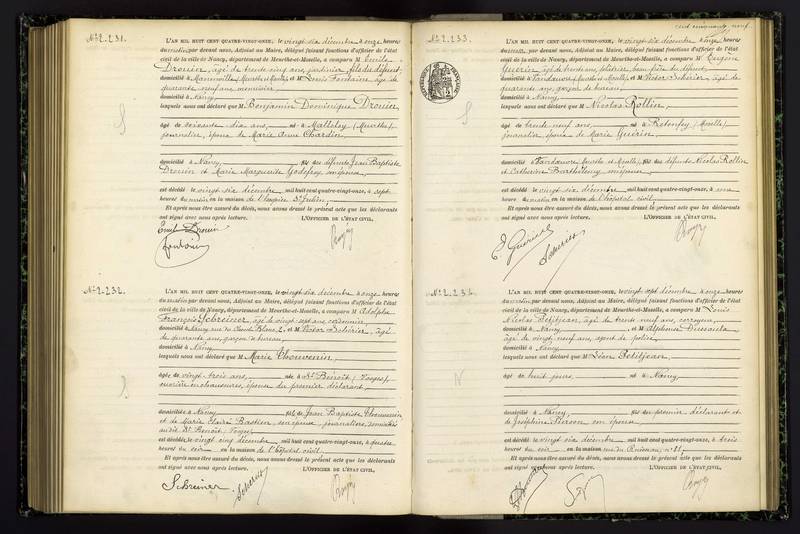 cent cinquante-neuf
N° 2.231.
L'AN MIL HUIT CENT QUATRE-VINGT-ONZE, le vingt six décembre à onze heures
du matin, par devant nous, Adjoint au Maire, délégué faisant fonctions d'officier de l'état
civil de la ville de Nancy, département de Meurthe-et-Moselle, a comparu M Emile
Drouin, âgé de trente cinq ans, jardinier, fils du défunt,
domicilié à (Meurthe et Moselle) et M Louis Fontaine, âgé de
quarante neuf ans, menuisier,
domicilié à Nancy
lesquels nous ont déclaré que M Benjamin Dominique Drouin,
âgé de soixante dix ans, né à (Meurthe),
journalier, époux de Marie Anne Chardin,
domicilié à Nancy, fils des défunts Jean Baptiste
Drouin et Marie Marguerite Godefroy son épouse,
est décédé le vingt six décembre mil huit cent quatre-vingt-onze, à sept
heures du matin en la maison de l'hospice St Julien,
Et après nous être assuré du décès, nous avons dressé le présent acte que les déclarants
ont signé avec nous après lecture. L'OFFICIER DE L'ÉTAT CIVIL,
Emile Drouin
N° 2.232.
L'AN MIL HUIT CENT QUATRE-VINGT-ONZE, le vingt six décembre à onze heures
du matin, par devant nous, Adjoint au Maire, délégué faisant fonctions d'officier de l'état
civil de la ville de Nancy, département de Meurthe-et-Moselle, a comparu M Adolphe
François Schreiner, âgé de vingt sept ans, cordonnier,
domicilié à Nancy rue du 2, et M Victor âgé
de quarante ans, garçon de bureau,
domicilié à Nancy
lesquels nous ont déclaré que M Marie Thouvenin,
âgée de vingt trois ans, née à St Benoît (Vosges),
ouvrière en chaussures, épouse du premier déclarant,
domiciliée à Nancy fille de Jean Baptiste Thouvenin
et de Marie Bastien, son épouse, journaliers, domiciliés
audit St Benoît, Vosges
est décédée le vingt cinq décembre mil huit cent quatre-vingt-onze, à quatre
heures du soir en la maison de l'hôpital civil,
Et après nous être assuré du décès, nous avons dressé le présent acte que les déclarants
ont signé avec nous après lecture. L'OFFICIER DE L'ÉTAT CIVIL,
Schreiner
N° 2.233.
L'AN MIL HUIT CENT QUATRE-VINGT-ONZE, le vingt six décembre à onze heures
du matin, par devant nous, Adjoint au Maire, délégué faisant fonctions d'officier de l'état
civil de la ville de Nancy, département de Meurthe-et-Moselle, a comparu M Eugène
Guérin, âgé de trente ans, beau frère du défunt,
domicilié à Vandoeuvre (Meurthe et Moselle), et M Victor âgé de
quarante ans, garçon de bureau,
domicilié à Nancy
lesquels nous ont déclaré que M Nicolas Rollin,
âgé de trente neuf ans, né à Retonfey (Moselle),
journalier, époux de Marie Guérin,
domicilié à Vandoeuvre (Meurthe et Moselle), fils des défunts Nicolas Rollin
et Catherine Barthélemy son épouse,
est décédé le vingt six décembre mil huit cent quatre-vingt-onze, à une
heure du matin en la maison de l'hôpital civil,
Et après nous être assuré du décès, nous avons dressé le présent acte que les déclarants
ont signé avec nous après lecture. L'OFFICIER DE L'ÉTAT CIVIL,
E Guérin
N° 2.234.
L'AN MIL HUIT CENT QUATRE-VINGT-ONZE, le vingt sept décembre à onze heures
du matin, par devant nous, Adjoint au Maire, délégué faisant fonctions d'officier de l'état
civil de la ville de Nancy, département de Meurthe-et-Moselle, a comparu M Louis
Nicolas Petitjean, âgé de trente neuf ans, corroyeur,
domicilié à Nancy et M Alphonse
âgé de vingt neuf ans, agent de police,
domicilié à Nancy
lesquels nous ont déclaré que M Léon Petitjean,
âgé de huit jours, né à Nancy,
domicilié à Nancy, fils du premier déclarant et
de Joséphine Pierson son épouse,
est décédé le vingt six décembre mil huit cent quatre-vingt-onze, à trois
heures du soir en la maison rue du n° 81,
Et après nous être assuré du décès, nous avons dressé le présent acte que les déclarants
ont signé avec nous après lecture. L'OFFICIER DE L'ÉTAT CIVIL,